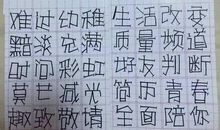 难过幼稚 生活改变
黯淡充满 质量频道
时间彩虹 好友判断
莫甘减光 简历青春
趣致敬情 全面陪你